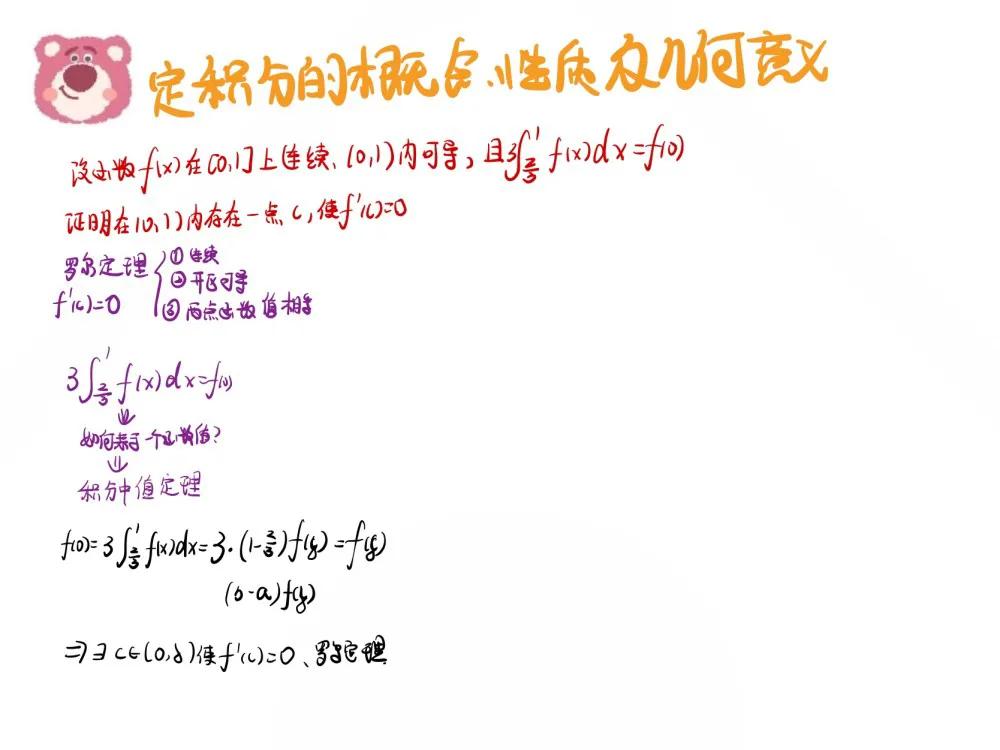 定积分的概念、性质及几何意义
设函数f(x)在[0,1]上连续、(0,1)内可导，且3∫_{2/3}^{1} f(x)dx=f(0)
证明在(0,1)内存在一点c，使f'(c)=0
罗尔定理 { ①连续
②开区可导
f'(c)=0 ③两点函数值相等
3∫_{2/3}^{1} f(x)dx=f(0)
⇓
如何表示一个函数值？
⇓
积分中值定理
f(0)=3∫_{2/3}^{1} f(x)dx=3·(1-2/3)f(ξ)=f(ξ)
(b-a)f(ξ)
⇒∃c∈(0,ξ)使f'(c)=0、罗尔定理